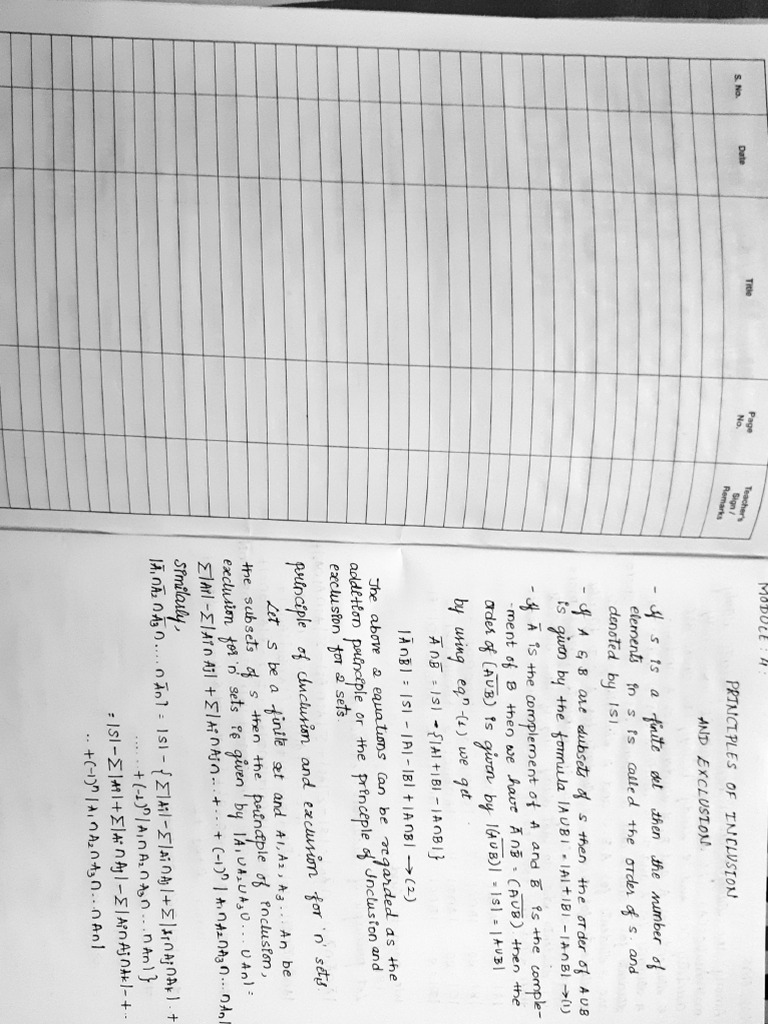 S. No.
Date
Title
Page No.
Teacher's Sign / Remarks
MODULE : 4 :
PRINCIPLES OF INCLUSION
AND EXCLUSION.
- If S is a finite set then the number of
elements in S is called the order of S and
denoted by |S|.
- If A & B are subsets of S then the order of A∪B
is given by the formula |A∪B| = |A|+|B| - |A∩B| →(1)
- If A̅ is the complement of A and B̅ is the comple-
-ment of B then we have A̅∩B̅ = (A̅∪̅B̅) then the
order of (A̅∪̅B̅) is given by |(A̅∪̅B̅)| = |S| = |A∪B|
by using eqⁿ-(1) we get
A̅∩B̅ = |S| - {|A|+|B| - |A∩B|}
|A̅∩B̅| = |S| - |A| - |B| + |A∩B| → (2)
The above 2 equations can be regarded as the
addition principle or the principle of Inclusion and
exclusion for 2 sets.
principle of Inclusion and exclusion for 'n' sets.
Let S be a finite set and A₁, A₂, A₃ ... An be
the subsets of S then the principle of inclusion,
exclusion for 'n' sets is given by |A₁∪A₂∪A₃∪ ... ∪An| =
Σ|Ai| - Σ|Ai∩Aj| + Σ|Ai∩Aj∩... + ... + (-1)ⁿ |A₁∩A₂∩A₃∩... ∩An|
Similarly,
|A̅₁∩A̅₂∩A̅₃∩.... ∩A̅n| = |S| - {Σ|Ai| - Σ|Ai∩Aj| + Σ|Ai∩Aj∩Ak| . +
..... + (-1)ⁿ |A₁∩A₂∩A₃∩ ... ∩An|}
= |S| - Σ|Ai| + Σ|Ai∩Aj| - Σ|Ai∩Aj∩Ak| - + ..
.. + (-1)ⁿ |A₁∩A₂∩A₃∩ ... ∩An|